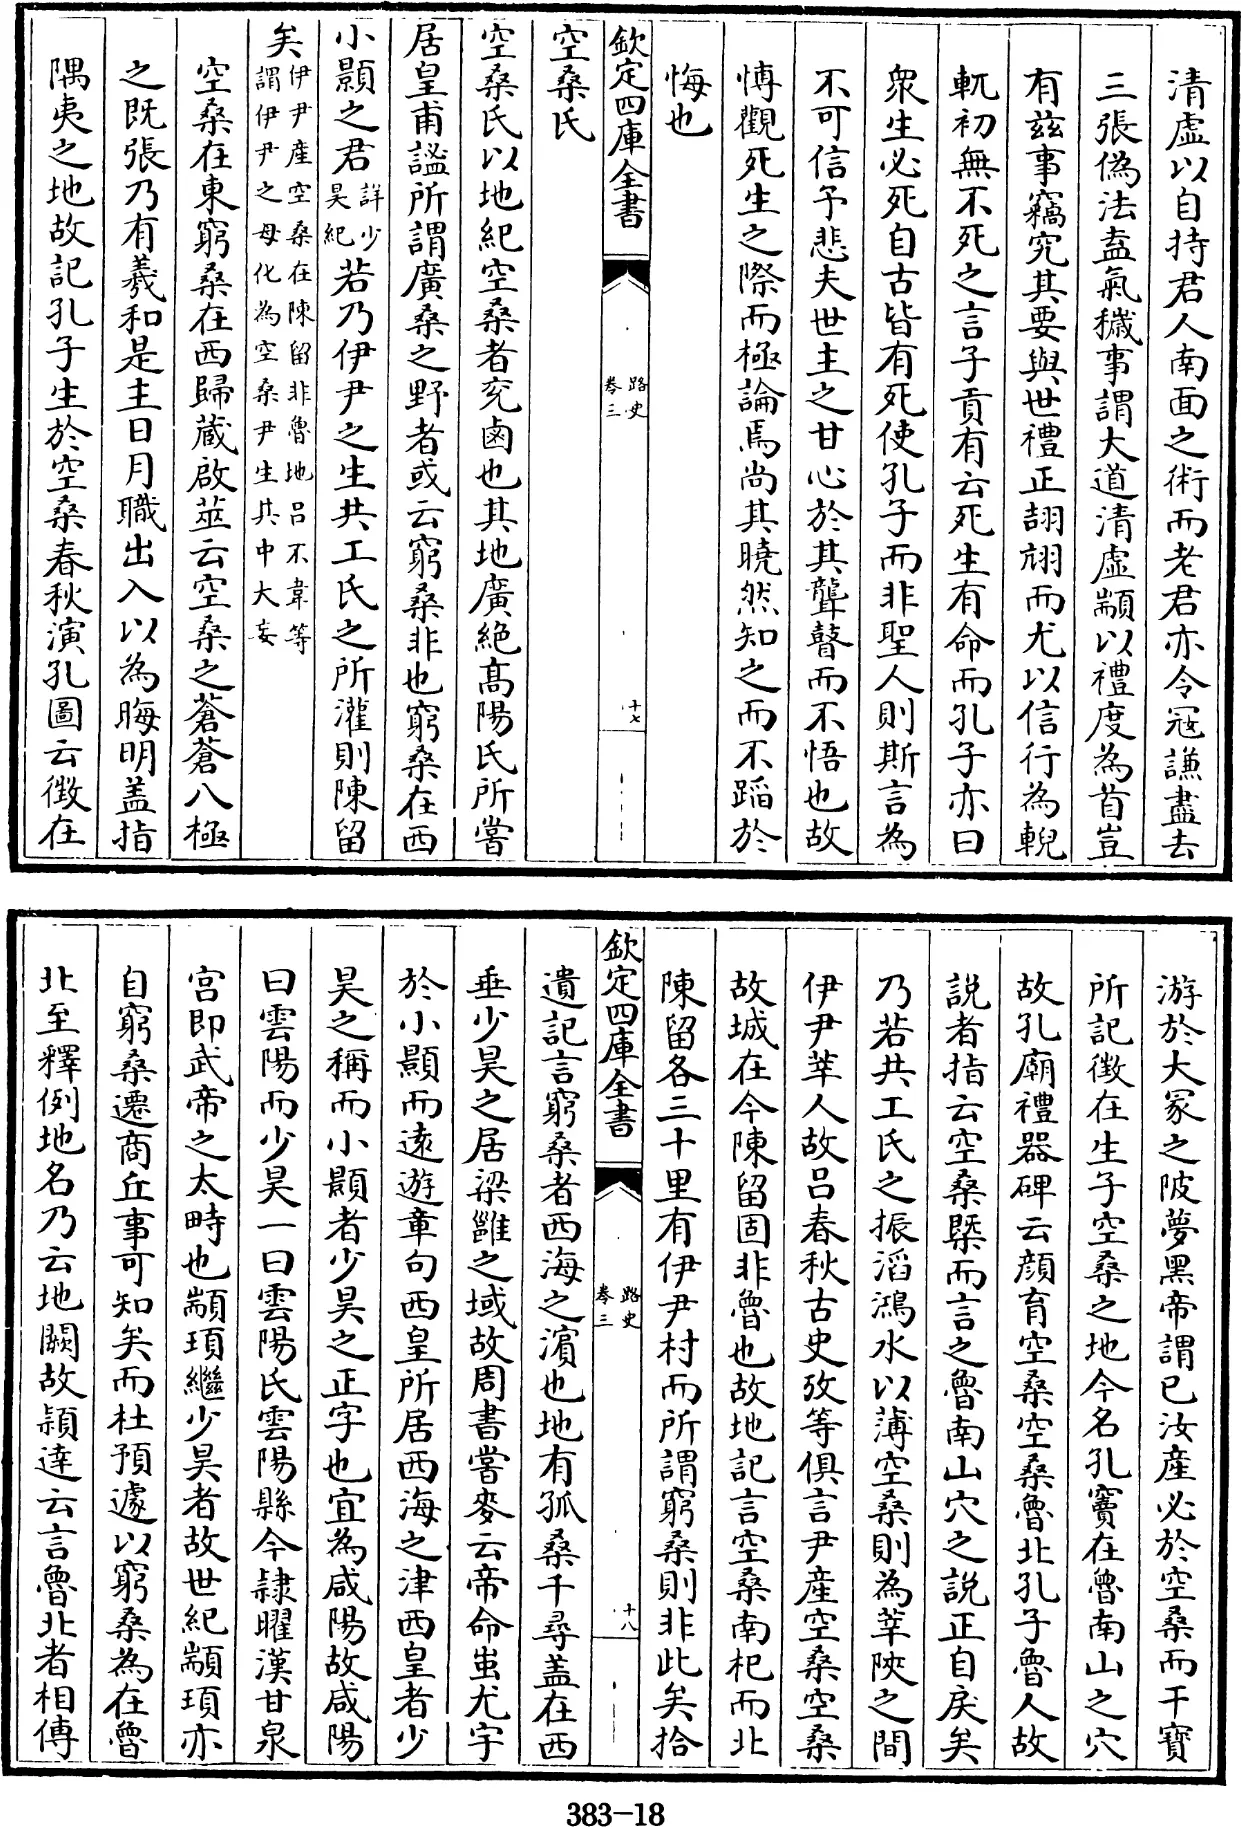 清虚以自持君人南面之術而老君亦令冦謙盡去
三張偽法盍氣穢事謂大道清虚顓以禮度為首豈
有兹事竊究其要與世禮正翮翃而尤以信行為輗
軏初無不死之言子貢有云死生有命而孔子亦曰
衆生必死自古皆有死使孔子而非聖人則斯言為
不可信予悲夫世主之甘心於其聾瞽而不悟也故
愽觀死生之際而極論焉尚其曉然知之而不蹈於
悔也
欽定四庫全書
路史
卷三
十七
空桑氏
空桑氏以地紀空桑者兖鹵也其地廣絶髙陽氏所嘗
居皇甫謐所謂廣桑之野者或云窮桑非也窮桑在西
小顥之君詳少昊紀若乃伊尹之生共工氏之所灌則陳留
矣伊尹産空桑在陳留非魯地吕不韋等謂伊尹之母化為空桑尹生其中大妄
空桑在東窮桑在西歸蔵啟莁云空桑之蒼蒼八極
之既張乃有羲和是主日月職出入以為晦明盖指
隅夷之地故記孔子生於空桑春秋演孔圖云徴在
游於大冢之陂夢黒帝謂已汝産必於空桑而干寳
所記徴在生子空桑之地今名孔竇在魯南山之穴
故孔廟禮器碑云顔育空桑空桑魯北孔子魯人故
説者指云空桑槩而言之魯南山穴之説正自戾矣
乃若共工氏之振滔鴻水以薄空桑則為莘陜之間
伊尹莘人故吕春秋古史攷等俱言尹産空桑空桑
故城在今陳留固非魯也故地記言空桑南杞而北
陳留各三十里有伊尹村而所謂窮桑則非此矣拾
欽定四庫全書
路史
卷三
十八
遺記言窮桑者西海之濱也地有孤桑千尋盖在西
垂少昊之居梁雝之域故周書嘗麥云帝命蚩尤宇
於小顥而逺遊章句西皇所居西海之津西皇者少
昊之稱而小顥者少昊之正字也宜為咸陽故咸陽
曰雲陽而少昊一曰雲陽氏雲陽縣今隷曜漢甘泉
宫即武帝之太畤也顓頊繼少昊者故世紀顓頊亦
自窮桑遷商丘事可知矣而杜預遽以窮桑為在魯
北至釋例地名乃云地闕故頴逹云言魯北者相傳
383-18